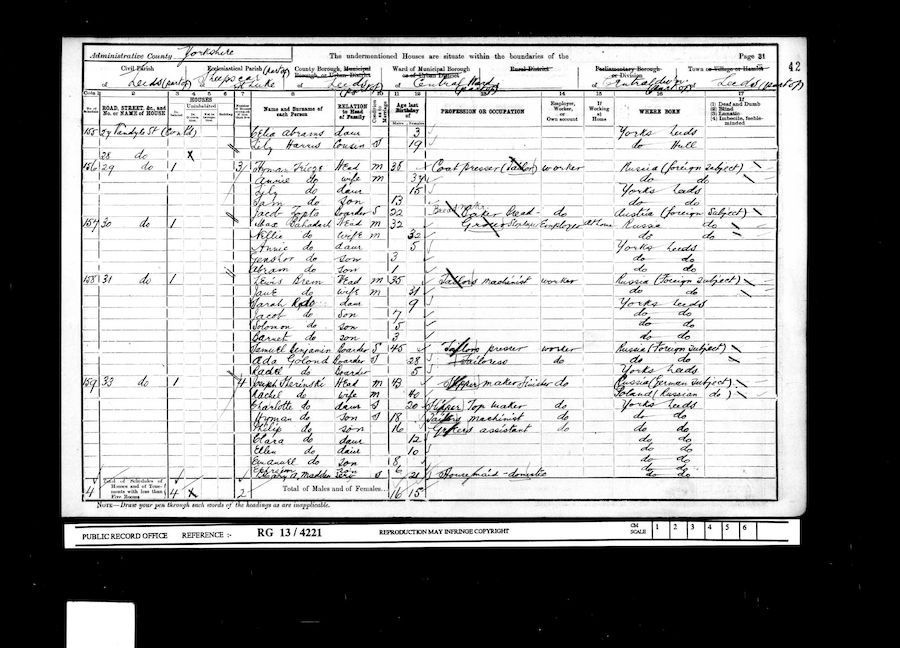 Administrative County Yorkshire
The undermentioned Houses are situate within the boundaries of the
Page 31
42
Civil Parish
Ecclesiastical Parish (part of)
County Borough, Municipal Borough, or Urban District
Ward of Municipal Borough or of Urban District
Rural District
Parliamentary Borough or Division
Town or Village or Hamlet
of Leeds (part of)
of Sheepscar St Luke
of Leeds
of Central Ward (part of)
of Central Divn (part of)
of Leeds (part of)
ROAD, STREET, &c., and No. or NAME of HOUSE
HOUSES
Name and Surname of each Person
RELATION to Head of Family
Age last Birthday of
PROFESSION OR OCCUPATION
Employer, Worker, or Own account
If Working at Home
WHERE BORN
(1) Deaf and Dumb (2) Blind (3) Lunatic (4) Imbecile, feeble-minded
155 27 St (Contd) Celia Abrams daur 3 Yorks Leeds
Lily Harris Cousin S 19 do Hull
28 do
156 29 do 1 3 Hyman Head M 38 Coat presser (Tailor) worker Russia (Foreign Subject)
Annie do wife M do do
Lily do daur 15 Yorks Leeds
Sam do Son 13 do do
Jacob Boarder S 22 Baker Bread do Austria (Foreign Subject)
30 do 1 Max Head M 32 Grocer Employer At Home Russia do
Nellie do wife M 32 do do
Annie do daur 5 Yorks Leeds
do son 3 do do
Abram do son 1 do do
158 31 do 1 Lewis Brem Head M 35 Tailors machinist worker Russia (Foreign Subject)
Jane do wife M 31 do do
Sarah do daur 9 Yorks Leeds
Jacob do Son 7 do do
Solomon do son 5 do do
Barnet do son 3 do do
Samuel Benjamin Boarder S 45 Tailors presser worker Russia (Foreign Subject)
Ada Boarder S 28 Tailoress do do do
do Boarder 5 Yorks Leeds
159 33 do 1 4 Joseph Head M 43 Slipper maker Finisher do Russia (German Subject)
Rachel do wife M 40 Poland (Russian do)
Charlotte do daur S 20 Slipper Top maker do Yorks Leeds
Hyman do son S 18 Tailors machinist do do do
Philip do son 16 Grocers assistant do do do
Clara do daur 12 do do
Ellen do daur 10 do do
Emanuel do son 8 do do
Ephraim Son 6 do do
Mary A. Madden Serv S 21 Housemaid - domestic do do
4 Total of Schedules of Houses and of Tenements with less than Five Rooms 4 2 Total of Males and of Females... 16 15
NOTE—Draw your pen through such words of the headings as are inapplicable.
PUBLIC RECORD OFFICE REFERENCE :- RG 13/4221 REPRODUCTION MAY INFRINGE COPYRIGHT CM SCALE 1 2 3 4 5 6